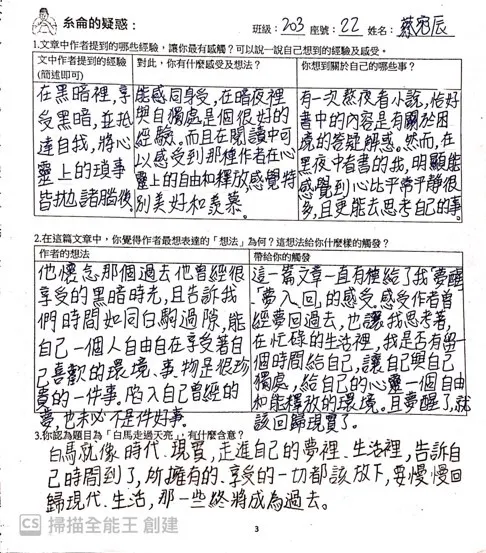 糸侖的疑惑：
班級：203 座號：22 姓名：蔡宏辰
1.文章中作者提到的哪些經驗，讓你最有感觸？可以說一說自己想到的經驗及感受。
文中作者提到的經驗
(簡述即可)
在黑暗裡，享
受黑暗，並抵
達自我，將心
靈上的瑣事
皆拋諸腦後。
對此，你有什麼感受及想法？
能感同身受，在暗夜裡
與自獨處是個很好的
經驗。而且在閱讀中可
以感受到那種作者在心
靈上的自由和釋放，感覺特
別美好和羨慕。
你想到關於自己的哪些事？
有一次熬夜看小說，恰好
書中的內容是有關於困
境的答疑解惑。然而，在
黑夜中看書的我，明顯能
感覺到心比平常平靜很
多，且更能去思考自己的事。
2.在這篇文章中，你覺得作者最想表達的「想法」為何？這想法給你什麼樣的觸發？
作者的想法
他懷念，那個過去他曾經很
享受的黑暗時光，且告訴我
們時間如同白駒過隙，能
自己一個人自由自在享受著自
己喜歡的環境、事物是很珍
貴的一件事。陷入自己曾經的
夢，也未必不是件好事。
帶給你的觸發
這一篇文章一直有種給了我「夢醒」
「夢入」回的感受，感受作者曾
經夢回過去，也讓我思考著，
在忙碌的生活裡，我是否有留一
個時間給自己，讓自己與自己
獨處，給自己的心靈一個自由
和能釋放的環境。且夢醒了，就
該回歸現實了。
3.你認為題目為「白馬走過天亮」，有什麼含意？
白馬就像時代、現實，走進自己的夢裡、生活裡，告訴自
己時間到了，所擁有的、享受的一切都該放下，要慢慢回
歸現代、生活，那一些終將成為過去。
CS 掃描全能王 創建
3